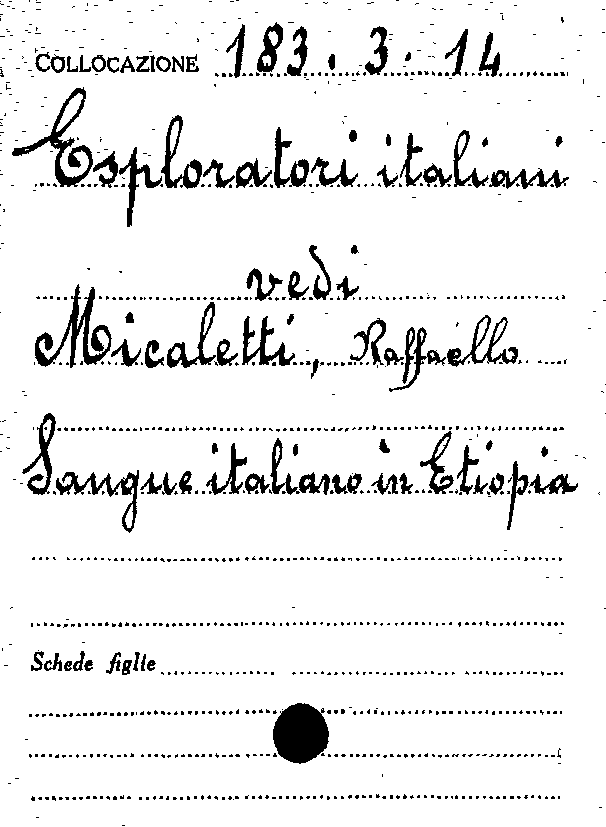 COLLOCAZIONE 183.3.14
Esploratori italiani
vedi
Micaletti, Raffaello
Sangue italiano in Etiopia
Schede figlie